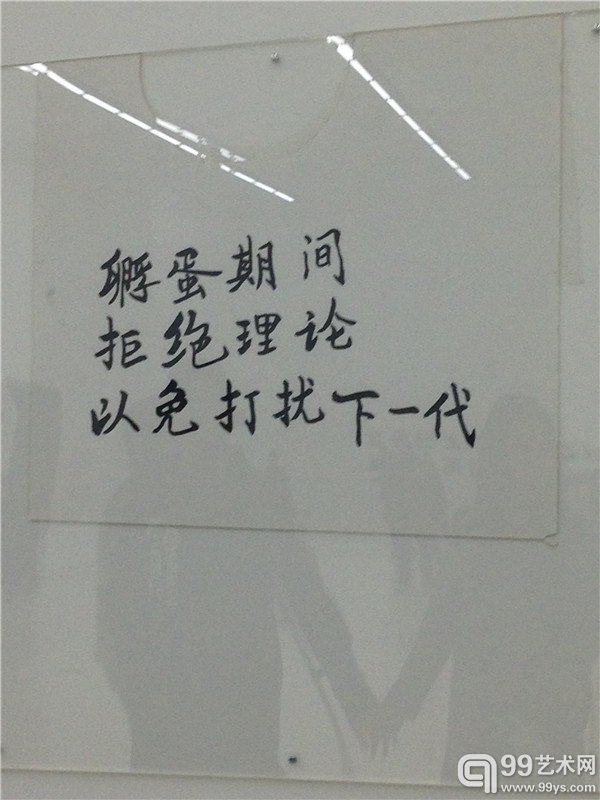 孵蛋期间
拒绝理论
以免打扰下一代
99艺术网
www.99ys.com